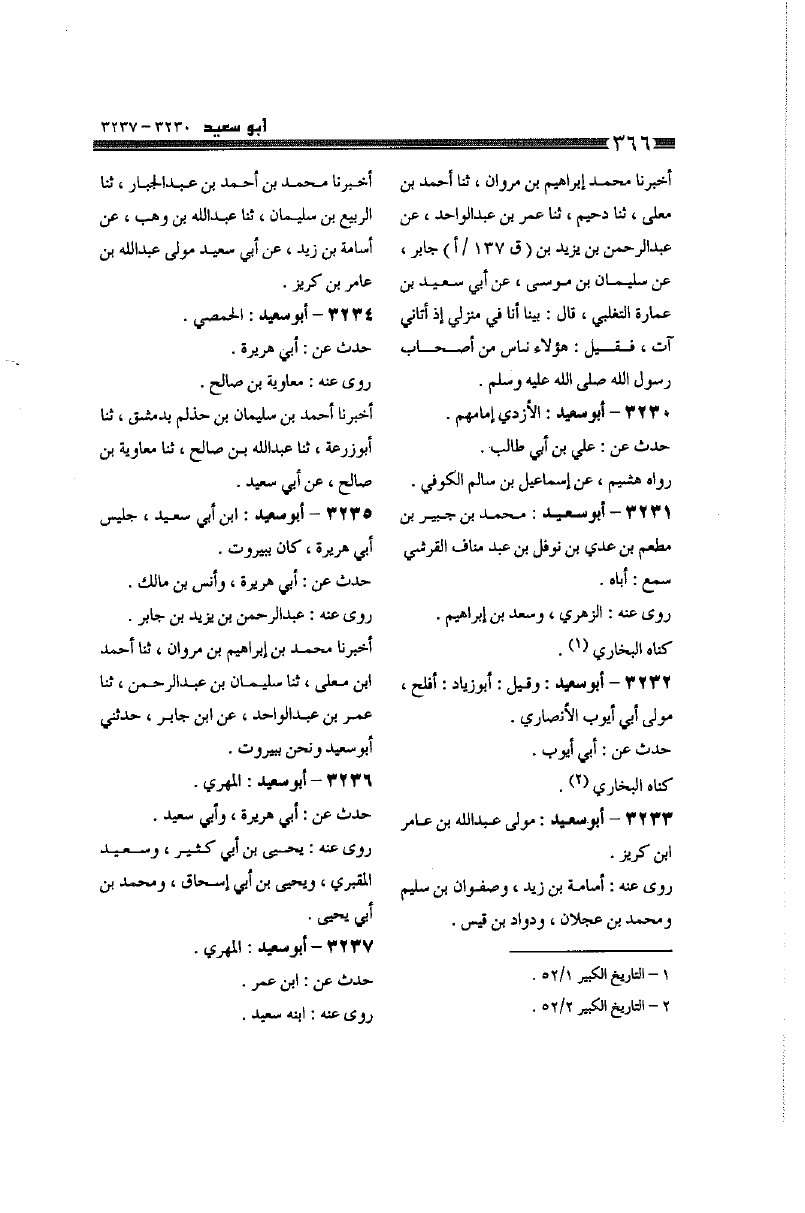 أبو سعيد ٣٢٣٠ – ٣٢٣٧
٣٦٦
أخبرنا محمد إبراهيم بن مروان ، ثنا أحمد بن
معلى ، ثنا دحيم ، ثنا عمر بن عبدالواحد ، عن
عبدالرحمن بن يزيد بن ( ق ١٣٧ / أ ) جابر ،
عن سليمان بن موسى ، عن أبي سعيد بن
عمارة التغلبي ، قال : بينا أنا في منزلي إذ أتاني
آت ، فقيل : هؤلاء ناس من أصحاب
رسول الله صلى الله عليه وسلم .
٣٢٣٠ – أبوسعيد : الأزدي إمامهم .
حدث عن : علي بن أبي طالب .
رواه هشيم ، عن إسماعيل بن سالم الكوفي .
٣٢٣١ – أبوسعيد : محمد بن جبير بن
مطعم بن عدي بن نوفل بن عبد مناف القرشي
سمع : أباه .
روى عنه : الزهري ، وسعد بن إبراهيم .
كناه البخاري (١) .
٣٢٣٢ – أبوسعيد : وقيل : أبوزياد : أفلح ،
مولى أبي أيوب الأنصاري .
حدث عن : أبي أيوب .
كناه البخاري (٢) .
٣٢٣٣ – أبوسعيد : مولى عبدالله بن عامر
ابن كريز .
روى عنه : أمامة بن زيد ، وصفوان بن سليم
ومحمد بن عجلان ، ودواد بن قيس .
١ – التاريخ الكبير ٥٢/١ .
٢ – التاريخ الكبير ٥٢/٢ .
أخبرنا محمد بن أحمد بن عبدالجبار ، ثنا
الربيع بن سليمان ، ثنا عبدالله بن وهب ، عن
أسامة بن زيد ، عن أبي سعيد مولى عبدالله بن
عامر بن كريز .
٣٢٣٤ – أبوسعيد : الحمصي .
حدث عن : أبي هريرة .
روى عنه : معاوية بن صالح .
أخبرنا أحمد بن سليمان بن حذلم بدمشق ، ثنا
أبوزرعة ، ثنا عبدالله بن صالح ، ثنا معاوية بن
صالح ، عن أبي سعيد .
٣٢٣٥ – أبوسعيد : ابن أبي سعيد ، جليس
أبي هريرة ، كان ببيروت .
حدث عن : أبي هريرة ، وأنس بن مالك .
روى عنه : عبدالرحمن بن يزيد بن جابر .
أخبرنا محمد بن إبراهيم بن مروان ، ثنا أحمد
ابن معلى ، ثنا سليمان بن عبدالرحمن ، ثنا
عمر بن عبدالواحد ، عن ابن جابر ، حدثني
أبوسعيد ونحن ببيروت .
٣٢٣٦ – أبوسعيد : المهري .
حدث عن : أبي هريرة ، وأبي سعيد .
روى عنه : يحيى بن أبي كثير ، وسعيد
المقبري ، ويحيى بن أبي إسحاق ، ومحمد بن
أبي يحيى .
٣٢٣٧ – أبوسعيد : المهري .
حدث عن : ابن عمر .
روى عنه : ابنه سعيد .